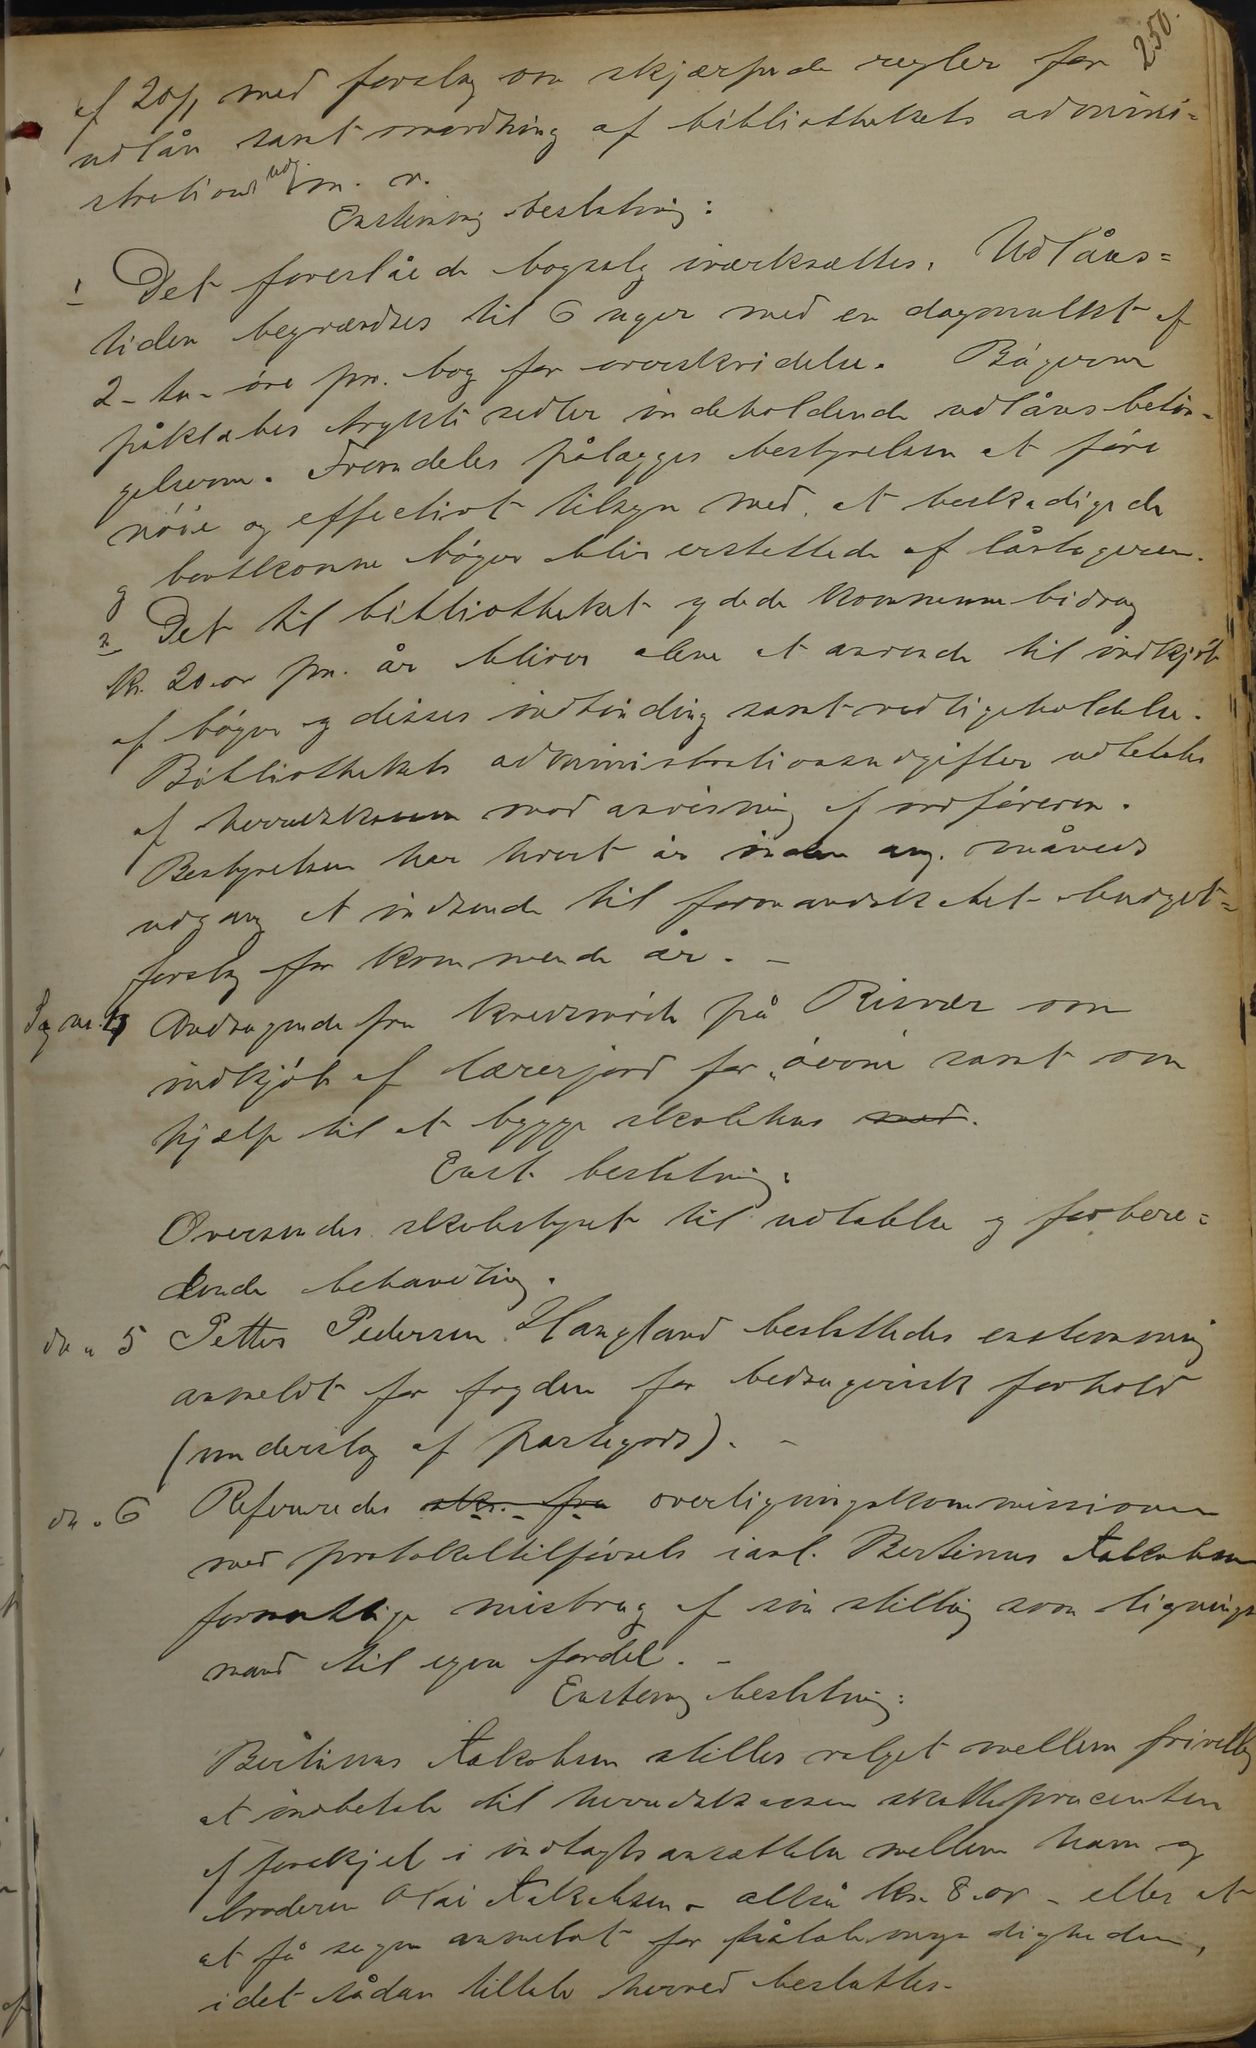 250.
af 20/1 med forslag om skjærpede regler for
udlån samt omordning af bibliothekets admini=
strations udg. m. v.
Enstemmig beslutning:
1 Det foreslåede bogsalg iværksættes. Udlåns=
tiden begrændses til 6 uger med en dagmulkt af
2 - to - øre pr. bog for overskridelse. Bøgerne
påklæbes trykte sedler indeholdende udlånsbetin=
gelserne. Fremdeles pålægges bestyrelsen at føre
nøie og effectivt tilsyn med, at beskadigede
og bortkomne bøger blir erstattede af låntageren.
2 Det til bibliotheket ydede kommunebidrag
kr. 20.00 pr. år bliver alene at anvende til indkjøb
af bøger og disses indbinding samt vedligeholdelse.
Bibliothekets administrationsudgifter udbetales
af herredskassen mod anvisning af ordføreren.
Bestyrelsen har hvert år inden aug. måneds
udgang at indsende til formandskabet budget=
forslag for kommende år. -
Sag nr. 4 Andragende fra kredsmøde på Risvær om
indkjøb af lærerjord for øerne samt om
hjælp til at bygge skolehus med.
Enst. beslutning:
Oversendes skolestyret til udtalelse og forbere=
dende behandling.
do " 5 Petter Pedersen Haugland besluttedes enstemmig
anmeldt for fogden for bedragerisk forhold
(underslag af pantegods). -
do " 6 Refereredes skr. fra overligningskommissionen
med protokoltilførsels ianl. Bertinus Jakobsen
formentlige misbrug af sin stilling som lignings
mand til egen fordel. -
Enstemmig beslutning:
Bertinus Jakobsen stilles valget mellem frivillig
at indbetale til herredskassen skatteprocenten
af forskjel i indtægtsansættelse mellem ham og
broderen Olai Jakobsen - altså kr. 8.00 - eller at
at få sagen anmeldt for påtalemyndigheden,
idet sådan tiltale herved besluttes.